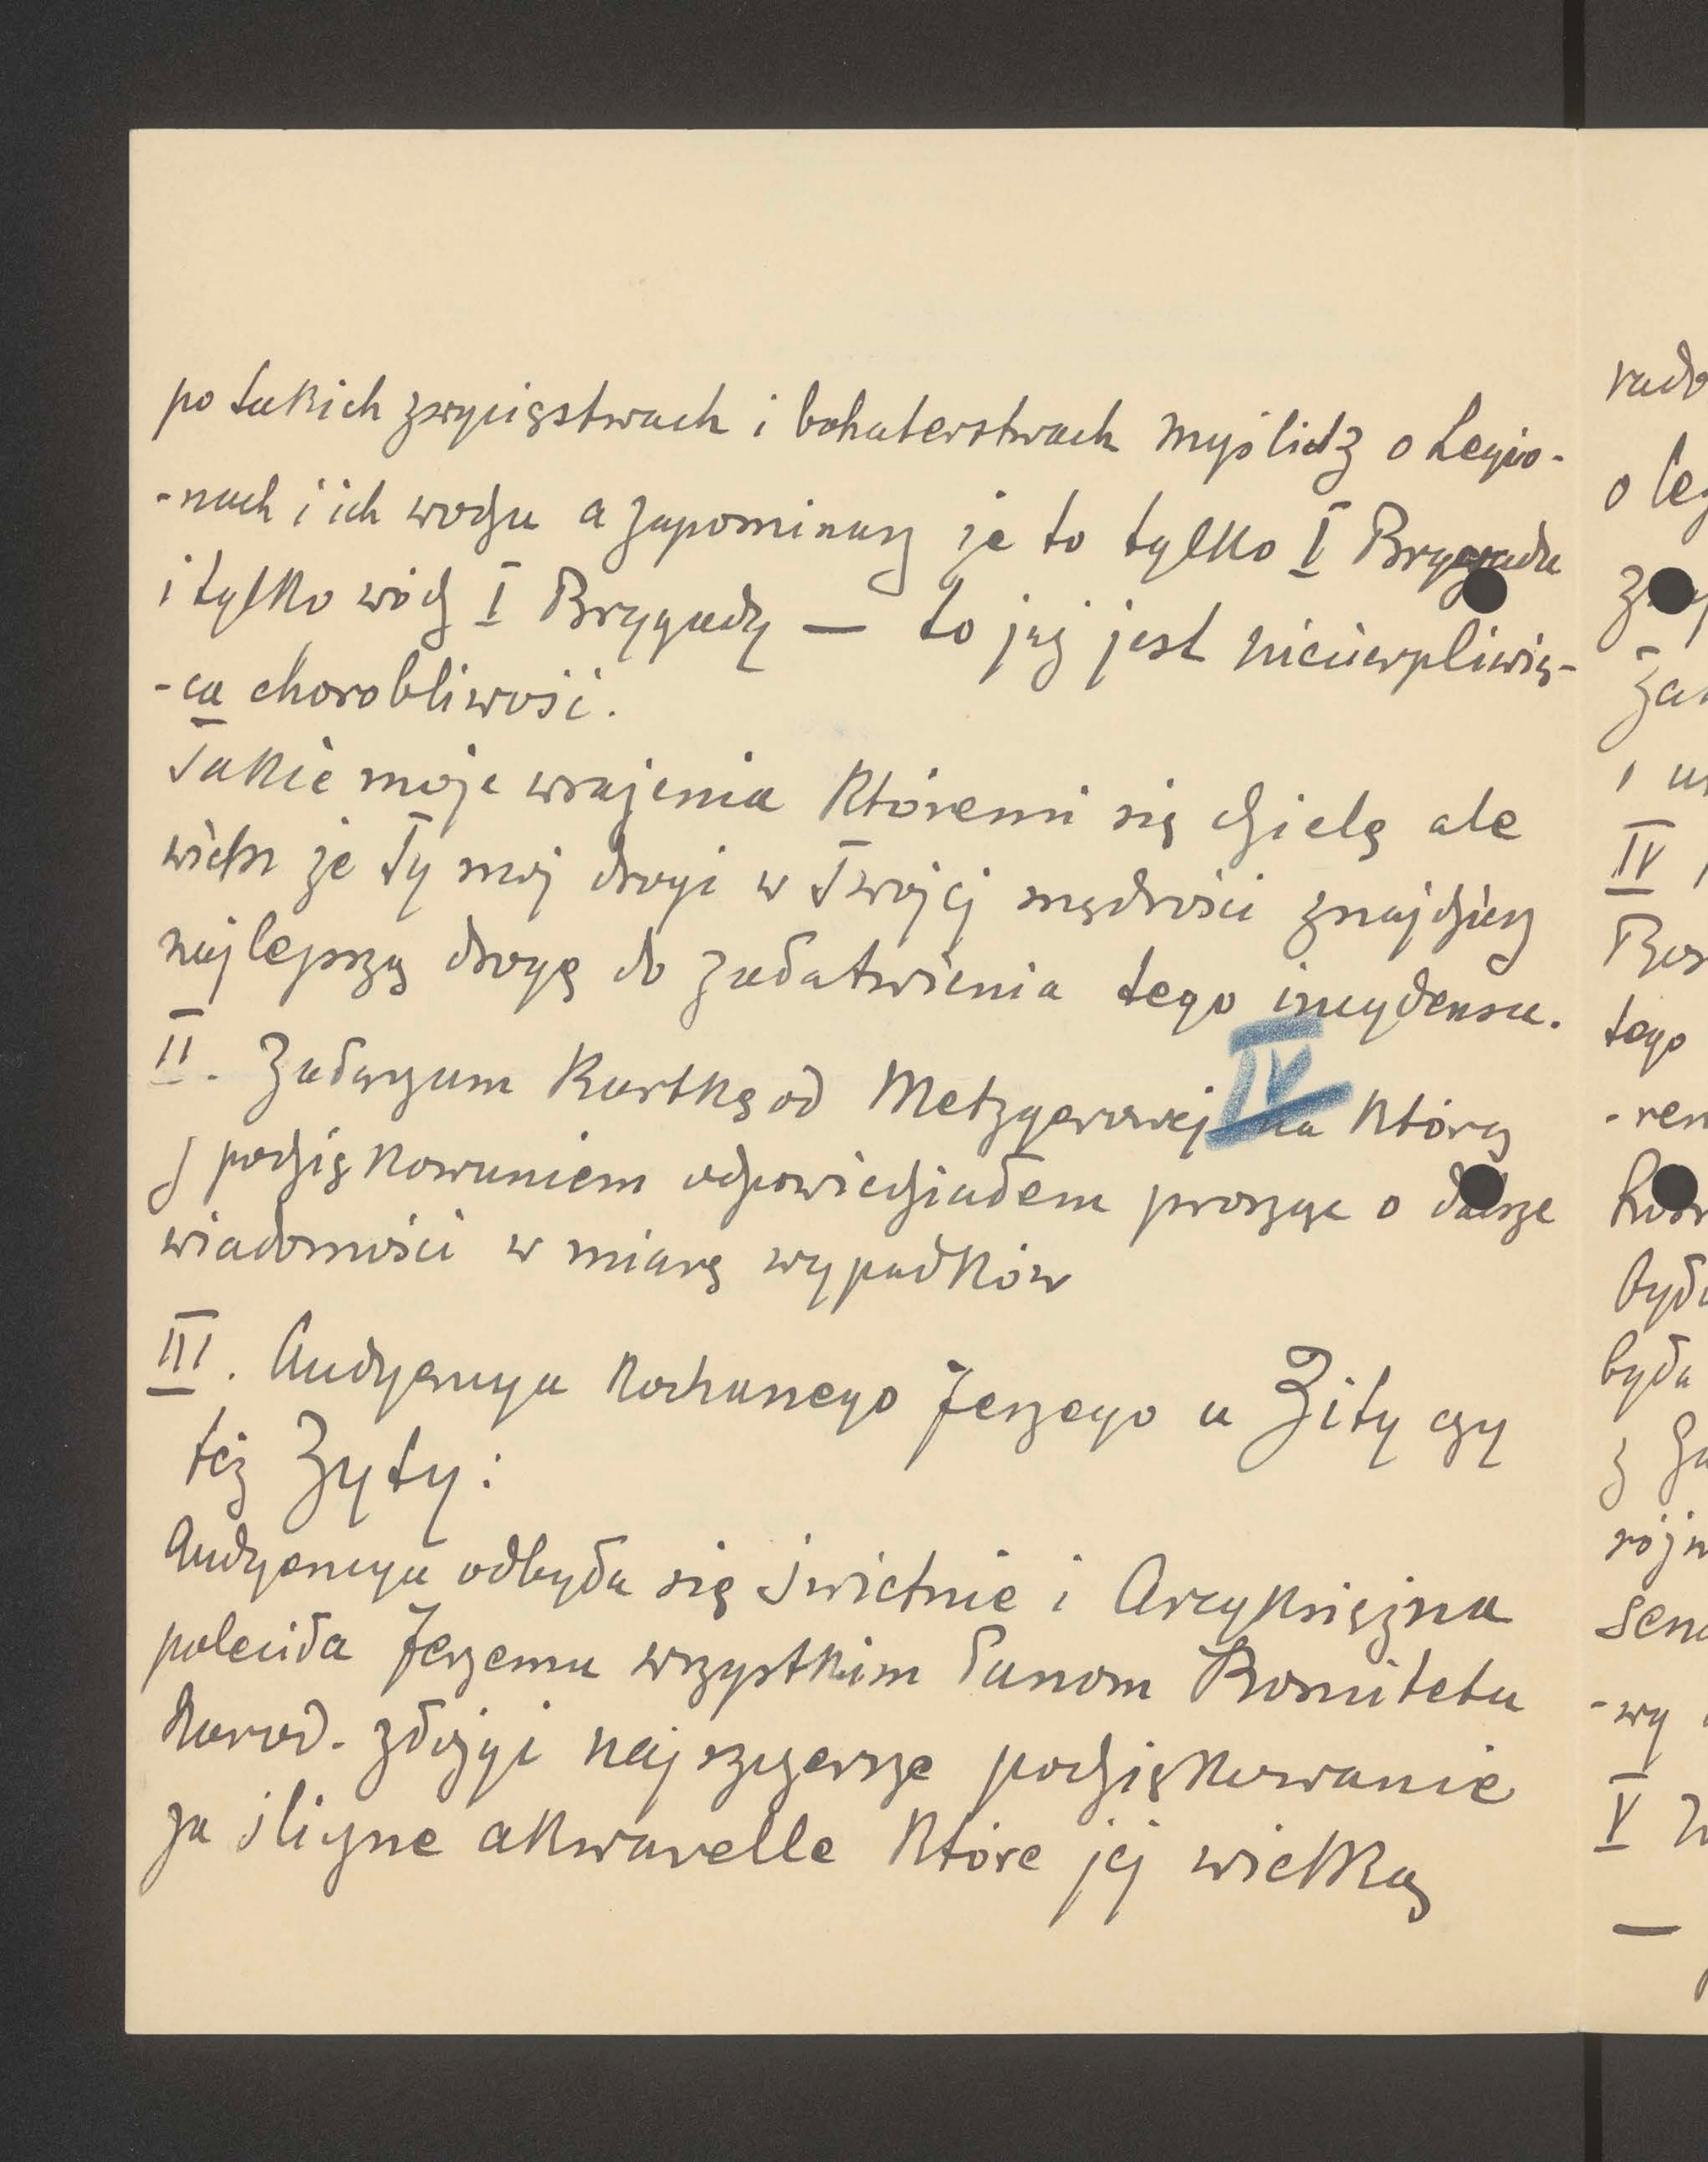 po takich zwycięstwach i bohaterstwach myślidz o Legio-
-nach i ich wodzu a zapominasz że to tylko I Brygada
i tylko wódz I Brygady — to już jest niecierpliwią-
-ca chorobliwość.
Takie moje wrażenia któremi się dzielę ale
wiem że Ty mój drogi w Twojej mądrości znajdziesz
najlepszą drogę do załatwienia tego incydensu.
II. Załączam kartkę od Metzgerowej na którą
z podziękowaniem odpowiedziałem prosząc o dalsze
wiadomości w miarę wypadków
IV
III. Audyencya kochanego Jerzego u Zity czy
też Zyty:
Audyencya odbyła się świetnie i Arcyksiężna
poleciła Jerzemu wszystkim Panom Komitetu
Narod. złożyć najszczersze podziękowanie
za śliczne akwarelle które jej wielką
rado
o leg
IV
tego
-ren
była
z
sena
-wy
V
—